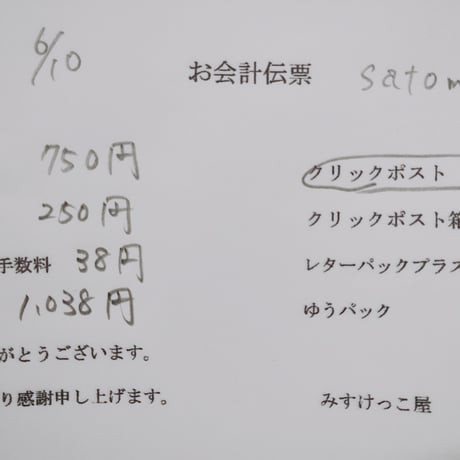 6/10
お会計伝票 satom
750円 クリックポスト
250円 クリックポスト箱
手数料 38円 レターパックプラス
1,038円 ゆうパック
がとうございます。
り感謝申し上げます。 みすけっこ屋